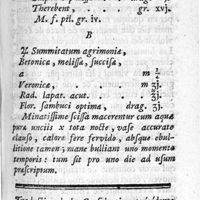 Therebent, . . . . gr. xvj.
M. f. pil. gr. iv.
B
♃ Summitatum agrimoniæ,
Betonicæ, melissæ, succisæ,
a m ½.
Veronicæ, m ʒj.
Rad. lapat. acut. ℥j.
Flor. sambuci optimæ, drag. 3j.
Minutissime scissa macerentur cum aquæ
puræ unciis x tota nocte, vase accurate
clauso, calore fere fervido, absque ebul-
litione tamen; mane bulliant uno momento
temporis: tum sit pro uno die ad usum
præscriptum.